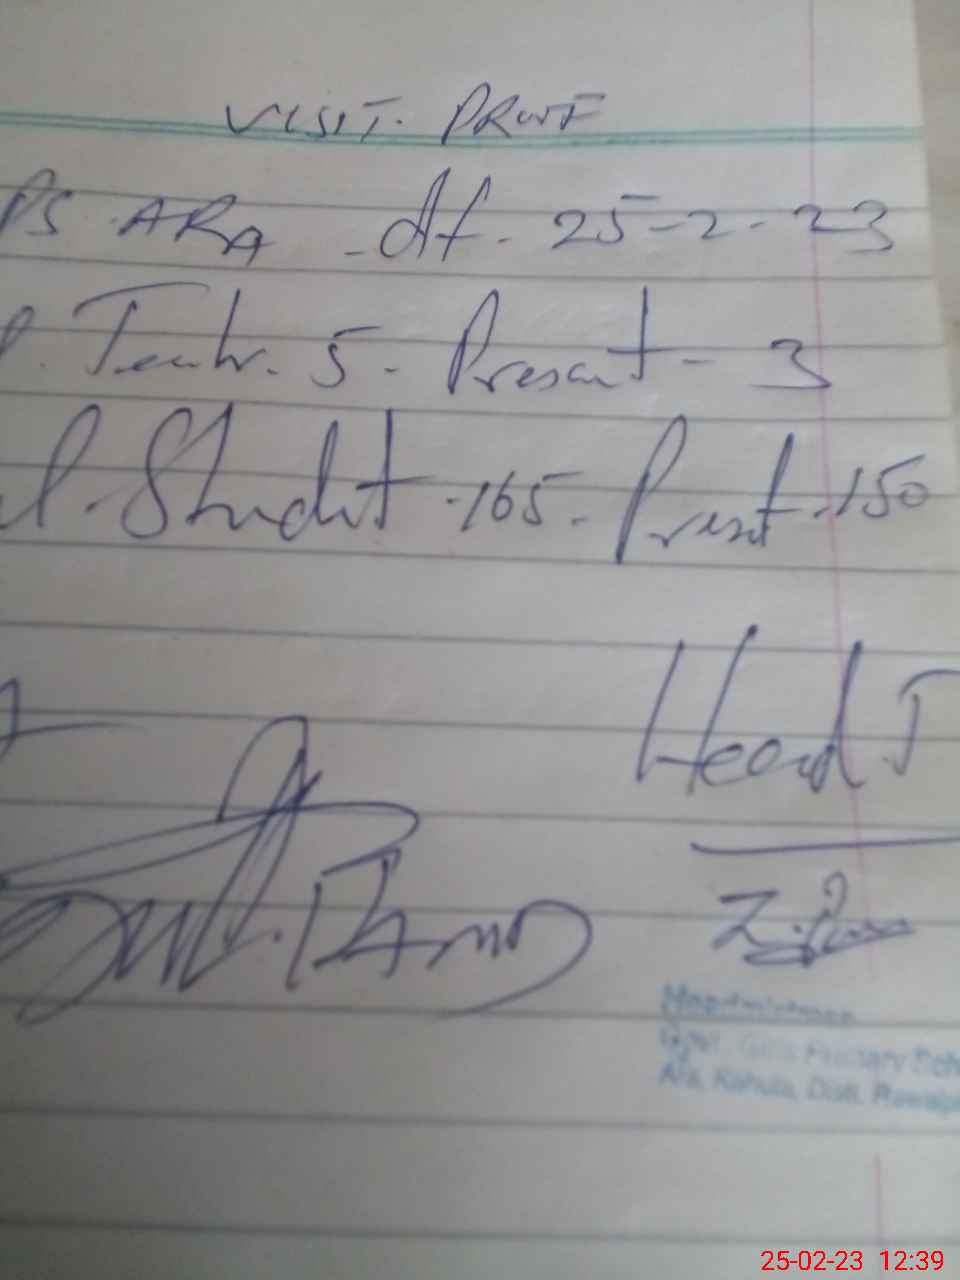 VISIT. PROOF
PS ARA - dt - 25-2-23
Teachr. 5 - Present - 3
l. Studnt - 165 - Present - 150
Head T
Headmistress
Govt. Girls Primary Sch
Ara, Kahuta, Distt. Rawalpi
25-02-23 12:39